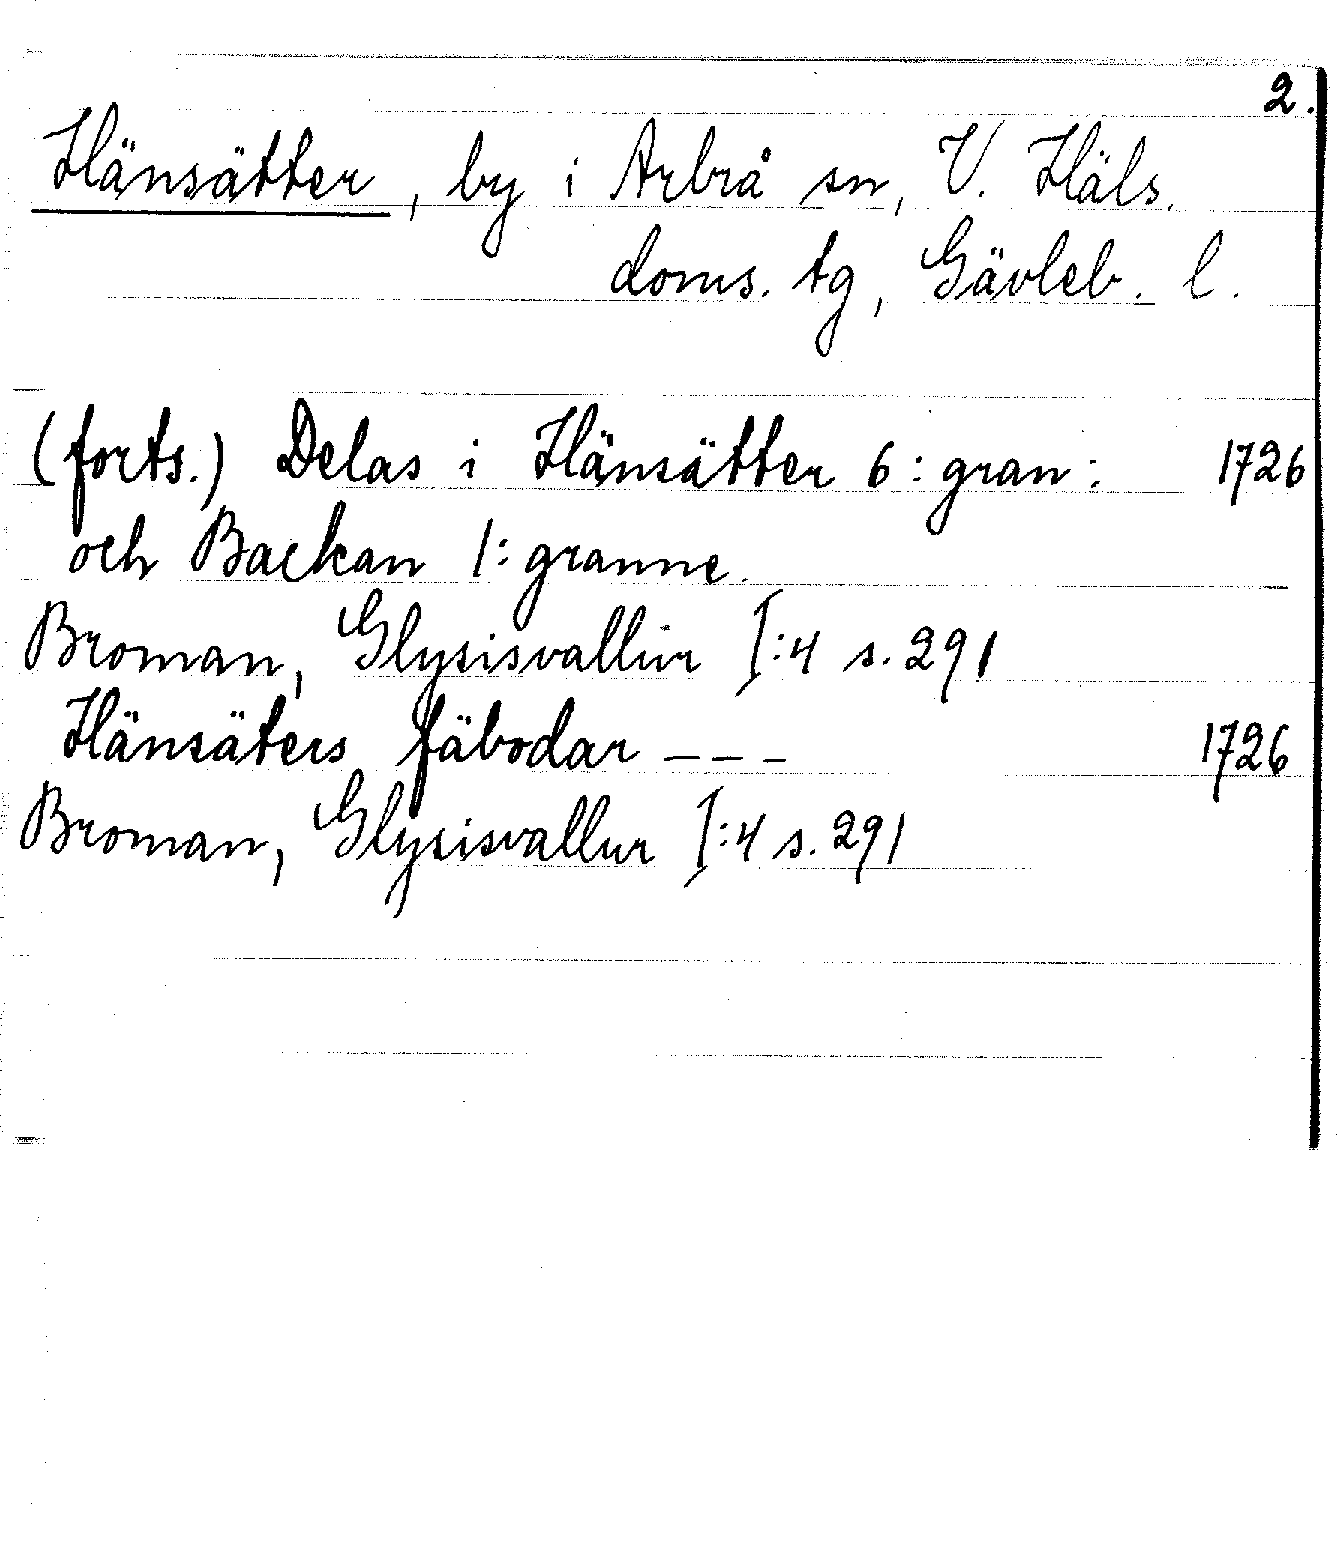 2.
Hänsätter, by i Arbrå sn, V. Häls.
doms. tg, Gävleb. l.
(forts.) Delas i Hänsätter 6: gran: 1726
och Backan 1: granne.
Broman, Glysisvallur I:4 s. 291
Hänsäters fäbodar --- 1726
Broman, Glysisvallur I:4 s. 291